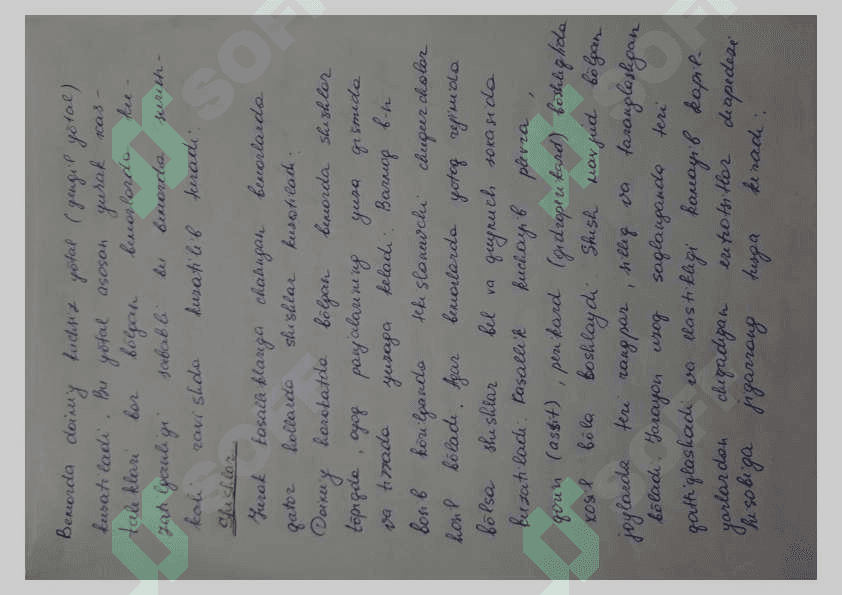 Bemorda doimiy kuchsiz yõtal (yengil yõtal)
kuzatiladi. Bu yõtal asosan yurak kas-
talliklari bor bõlgan bemorlarda ku-
zatilganligi sababli bu bemorda surun-
kali ravishda kuzatilib turadi.
Shishlar.
Yurak kasalliklariga chalingan bemorlarda
qator hollarda shishlar kuzatiladi.
Doimiy harakatda bõlgan bemorda shishlar
tõpiqda, oyoq panjalarining yuza qismida
va tizzada yuzaga keladi. Barmoq b-n
bosib kõrilganda tekislanuvchi chuqurchalar
hosil bõladi. Agar bemorlarda yotoq rejimida
bõlsa shishlar bel va quymuch sohasida
kuzatiladi. Kasallik kuchayib plevra,
qorin (assit), perikard (gidroperikard) bõshlig'ida
xosil bõla boshlaydi. Shish mavjud bõlgan
joylarda teri rangpar, silliq va taranglashgan
bõladi. Jarayon uzoq saqlanganda teri
qattiqlashadi va elastikligi kamayib kapil-
yarlardan chiqadigan eritrotsitlar diapedezi
hisobiga jigarrang tusga kiradi.
SOFF
SOFF
SOFF
SOFF